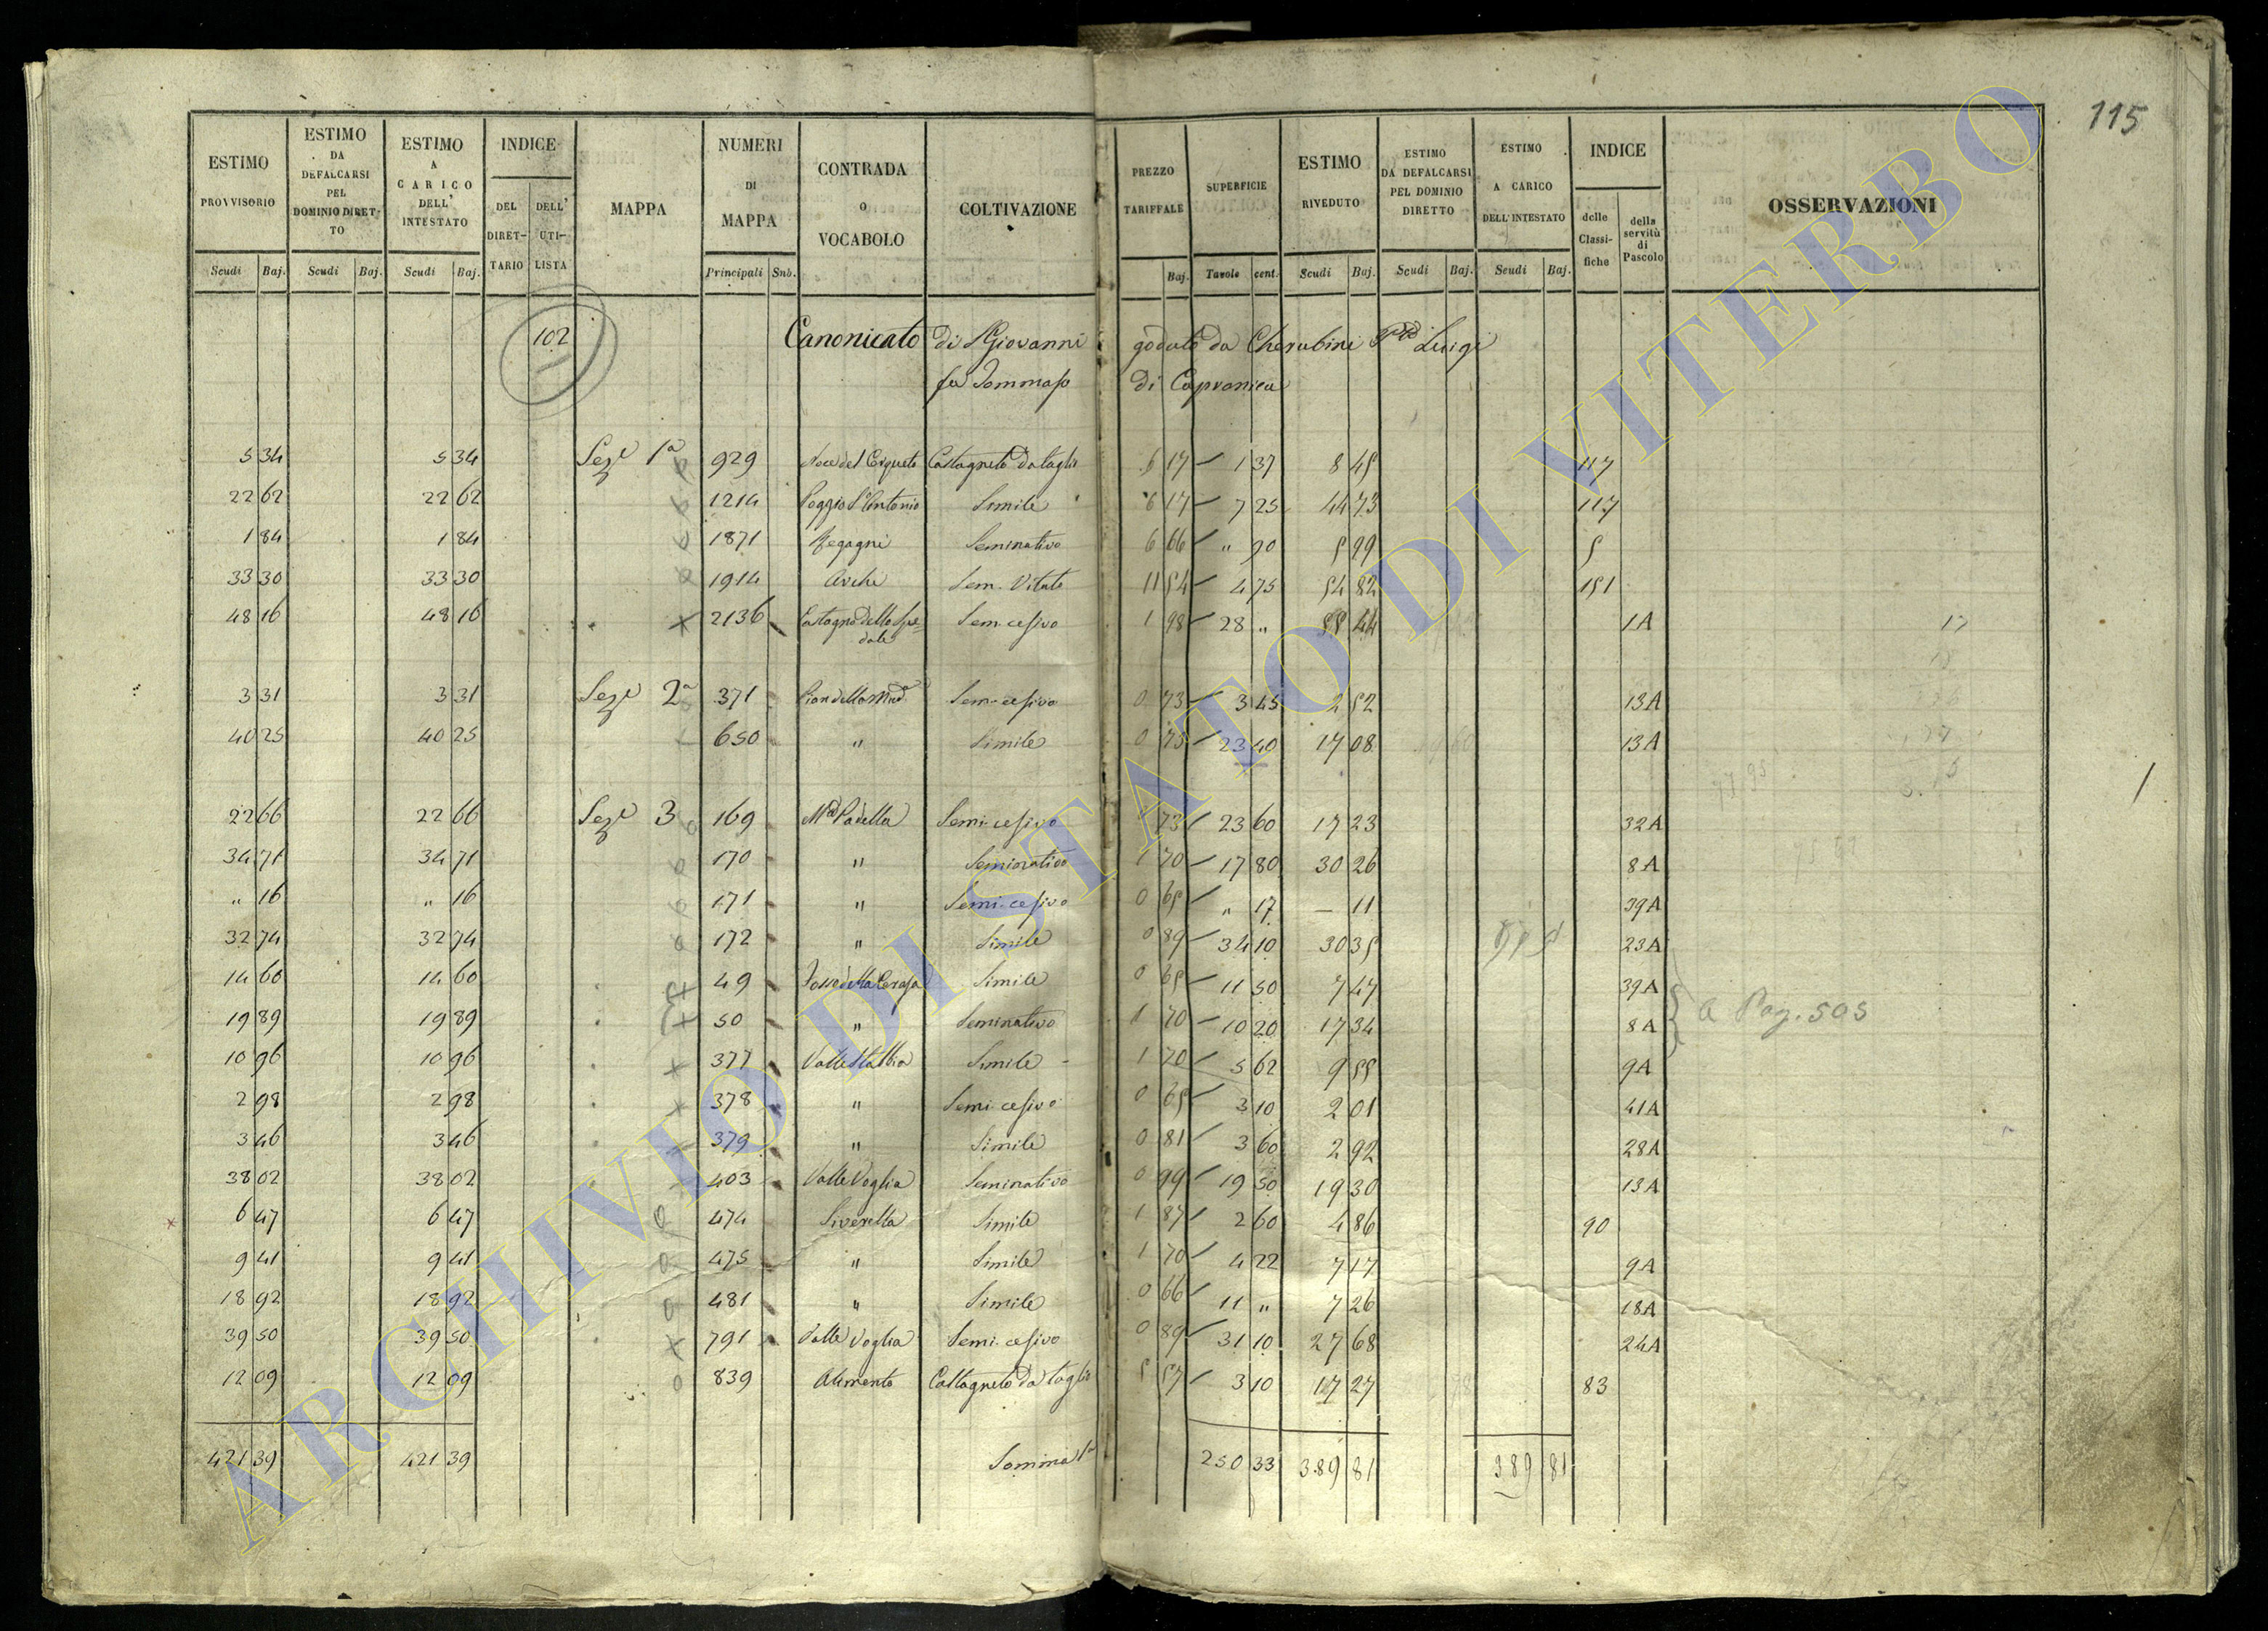 115
ESTIMO PROVVISORIO Scudi Baj. | ESTIMO DA DEFALCARSI PEL DOMINIO DIRET-TO Scudi Baj. | ESTIMO A CARICO DELL' INTESTATO Scudi Baj. | INDICE DEL DIRET-TARIO DELL' UTI-LISTA | MAPPA | NUMERI DI MAPPA Principali Sub. | CONTRADA O VOCABOLO | COLTIVAZIONE | PREZZO TARIFFALE Baj. | SUPERFICIE Tavole cent. | ESTIMO RIVEDUTO Scudi Baj. | ESTIMO DA DEFALCARSI PEL DOMINIO DIRETTO Scudi Baj. | ESTIMO A CARICO DELL'INTESTATO Scudi Baj. | INDICE delle Classifiche della servitù di Pascolo | OSSERVAZIONI
102 Canonicato di S Giovanni goduto da Cherubini Luigi
fu Tommaso di Capranica
5 34 5 34 Sez 1a 929 Noce del Cerqueto Castagneto da taglio 6 17 1 37 8 45 117
22 62 22 62 1214 Poggio S Antonio Simile 6 17 7 25 44 73 117
1 84 1 84 1871 Seminativo 6 66 " 90 5 99 5
33 30 33 30 1914 Archi Sem. Vitato 11 54 4 75 54 82 151
48 16 48 16 2136 Castagno dello Spe= Sem. cesivo 1 98 28 " 55 44 1A
dale
3 31 3 31 Sez 2a 371 Pian della Mad Sem. cesivo 0 73 3 45 2 52 13A
40 25 40 25 650 " Simile 0 73 23 40 17 08 13A
22 66 22 66 Sez 3 169 Padella Semi-cesivo 73 23 60 17 23 32A
34 71 34 71 170 " Seminativo 1 70 17 80 30 26 8A
" 16 " 16 171 " Semi-cesivo 0 65 " 17 — 11 39A
32 74 32 74 172 " Simile 0 89 34 10 30 35 23A
14 60 14 60 49 Fosso della Cerasa Simile 0 65 11 50 7 47 39A
19 89 19 89 50 " Seminativo 1 70 10 20 17 34 8A a Pag. 505
10 96 10 96 377 Valle Simile 1 70 5 62 9 55 9A
2 98 2 98 378 " Semi cesivo 0 65 3 10 2 01 41A
3 46 3 46 379 " Simile 0 81 3 60 2 92 28A
38 02 38 02 403 Valle Voglia Seminativo 0 99 19 50 19 30 13A
6 47 6 47 474 Siverella Simile 1 87 2 60 4 86 90
9 41 9 41 475 " Simile 1 70 4 22 7 17 9A
18 92 18 92 481 " Simile 0 66 11 " 7 26 18A
39 50 39 50 791 Valle Voglia Semi-cesivo 0 89 31 10 27 68 24A
12 09 12 09 839 Alimento Castagneto da taglio 5 57 3 10 17 27 83
421 39 421 39 Somma 250 33 389 81 389 81
ARCHIVIO DI STATO DI VITERBO